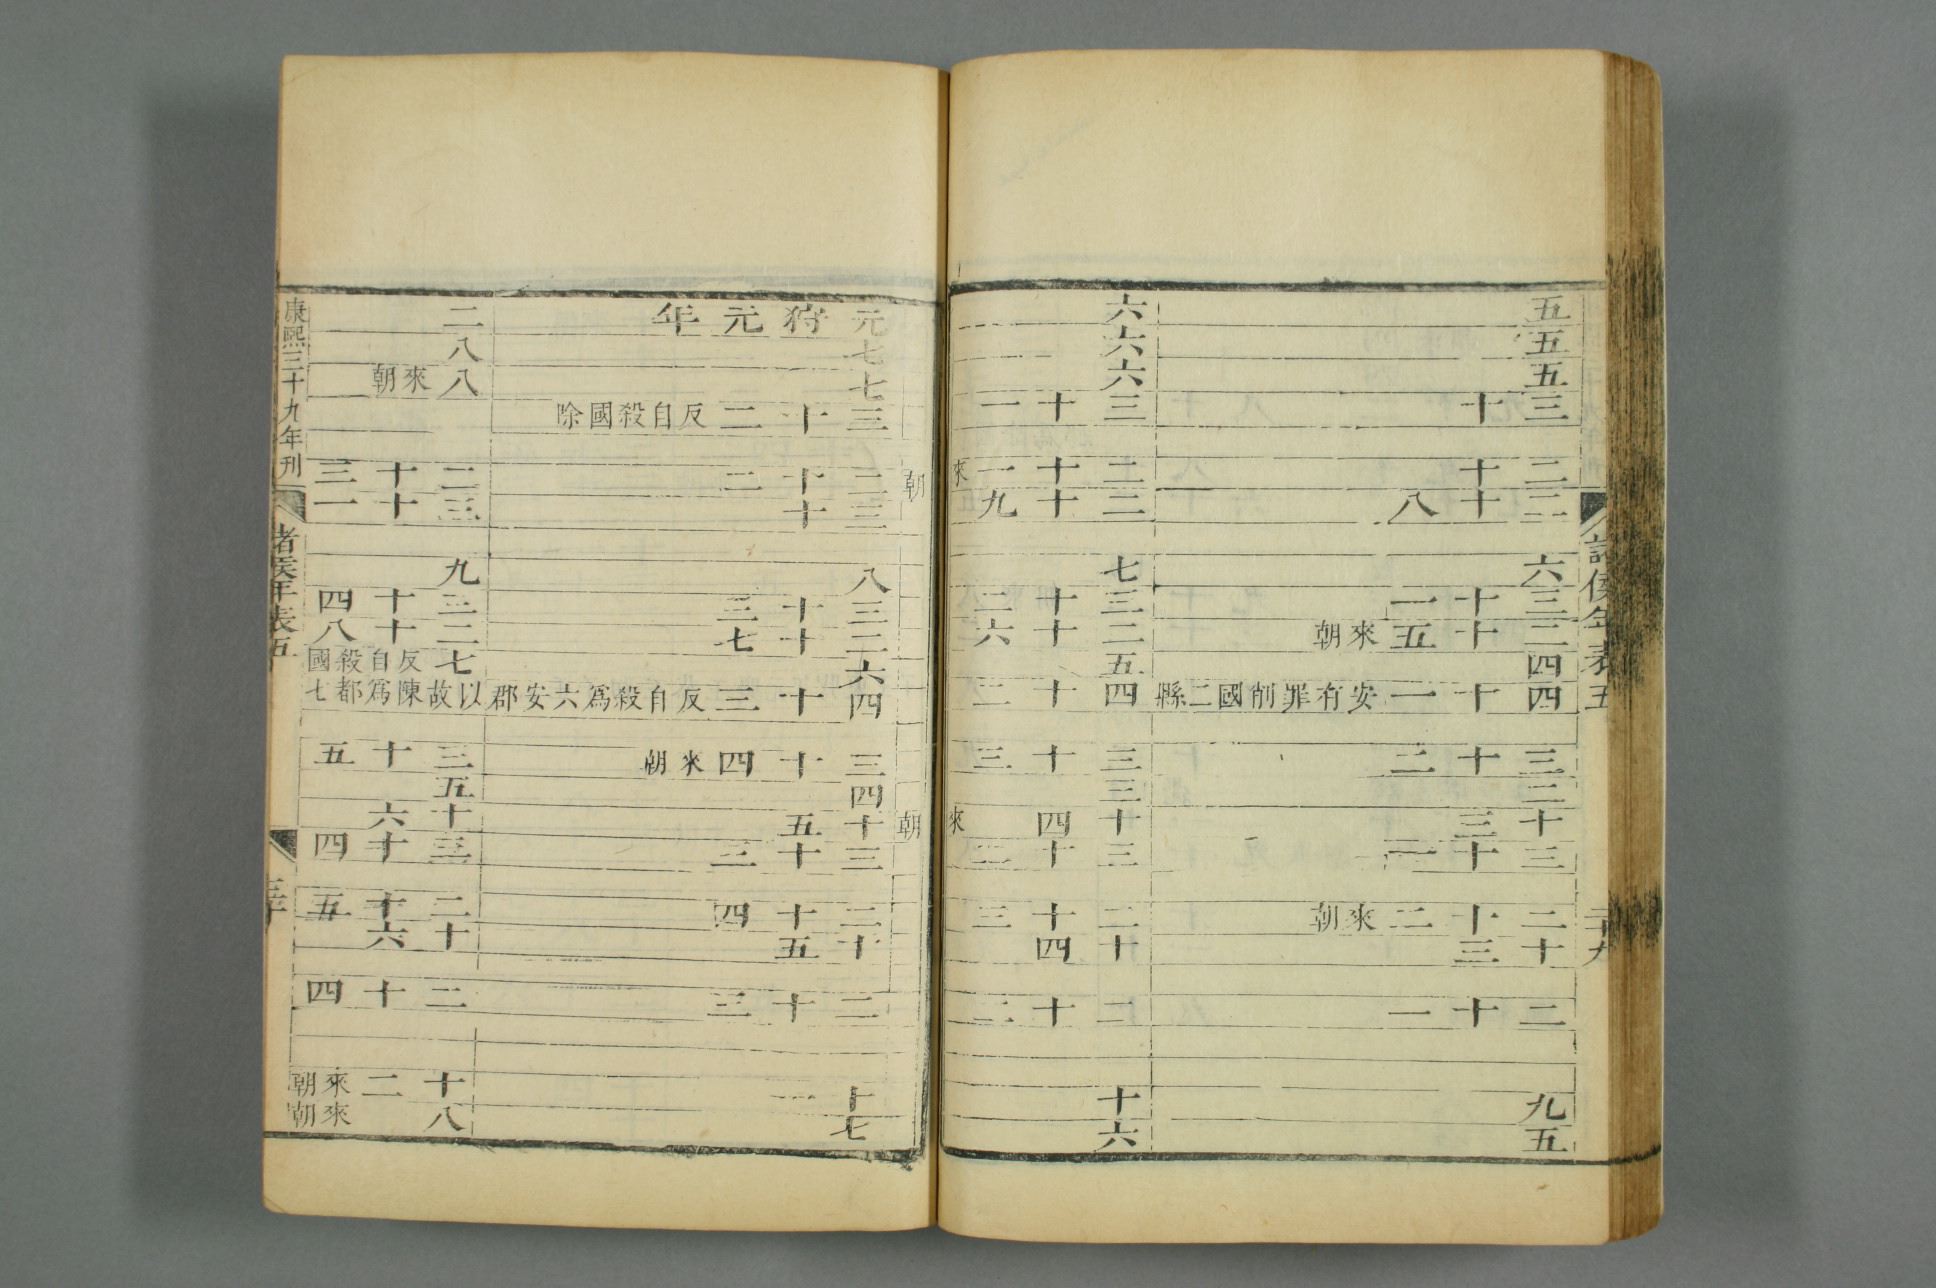 諸侯年表五
二十九
五
五
五
三十
二十
二十八
六
三十一
二十五來朝
四
四十一安有罪削國二縣
三十二
二
十三
三十一
二十二來朝
十三
二十一
九
五
六
六
六
三十一
二十一來朝
二十九
七
三十二
二十六
五
四十二
三十三
三
十四來朝
三十二
二十三
十四
二十二
十
六
元狩元年
七
七
三十二反自殺國除
二十二
三十
八
三十三
二十七
六
四十三反自殺爲六安郡
三十四來朝
四
十五
三十三
二十四
十五
二十三
十一
七
二
八
八來朝
二十三
三十一
九
三十四
二十八
七反自殺國
以故陳爲都七
三十五
五
十六
三十四
二十五
十六
二十四
十二來朝
八來朝
康熙三十九年刊
諸侯年表五
三十